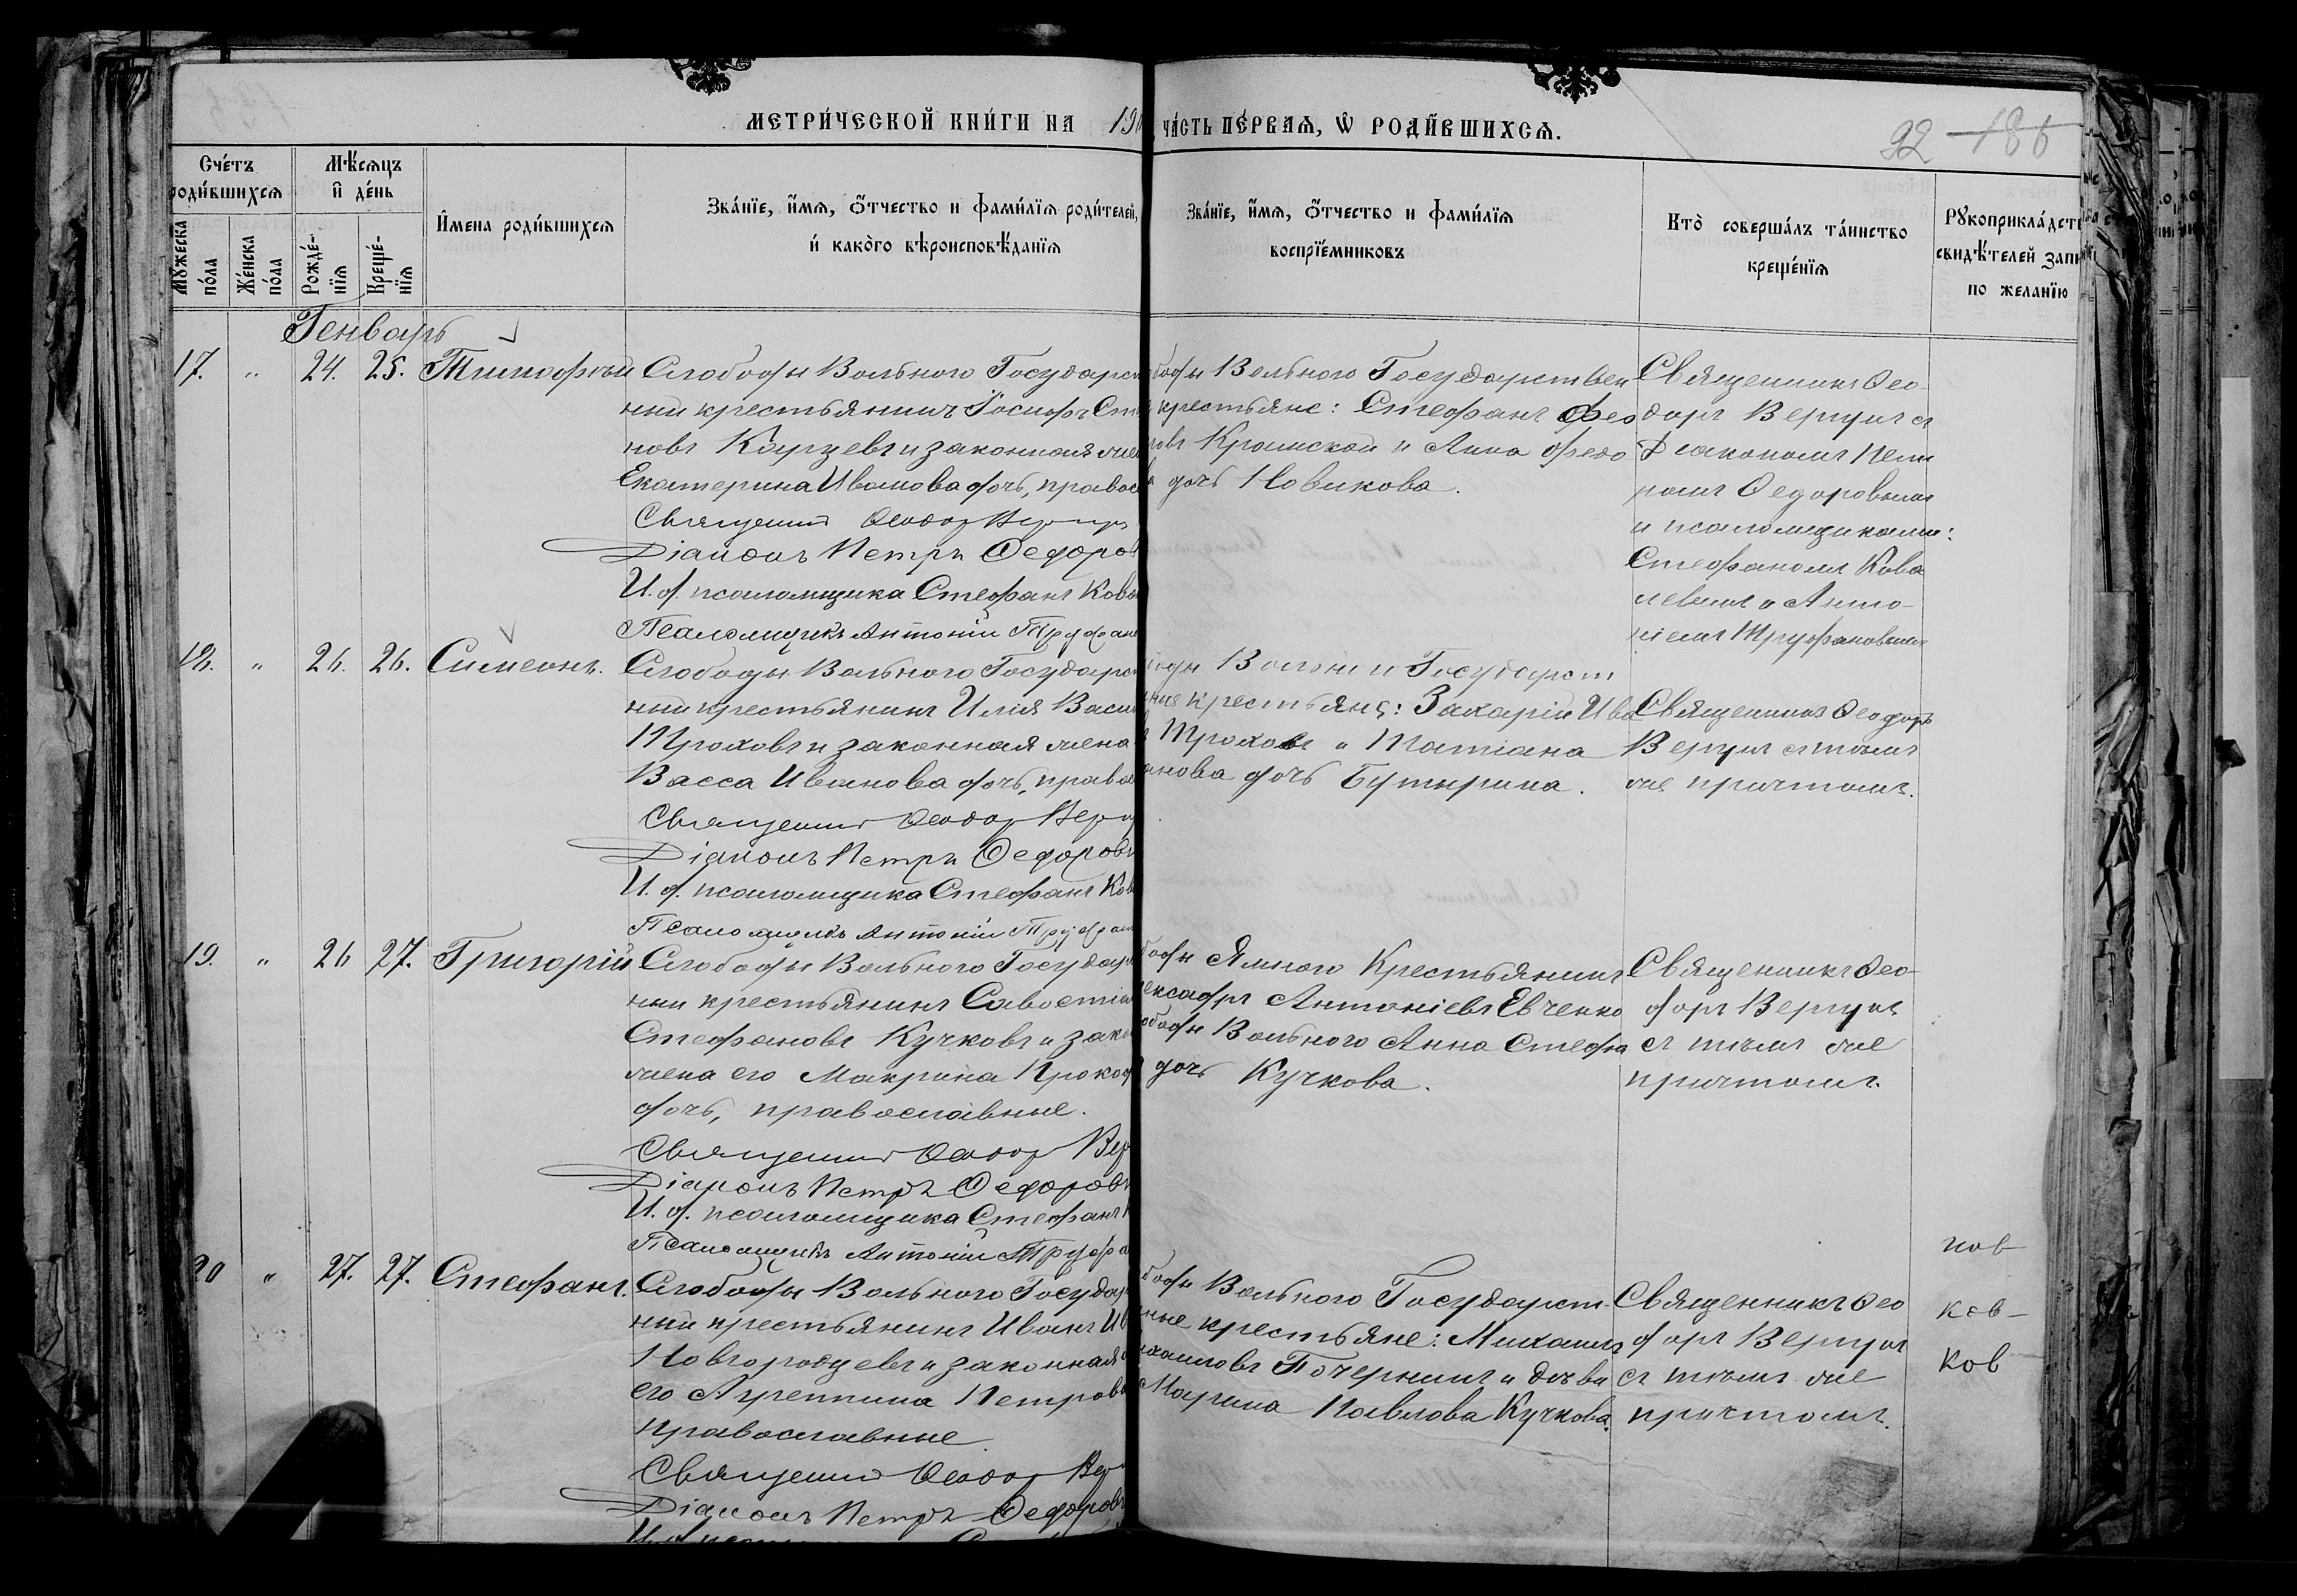 МЕТРИ́ЧЕСКОЙ КНИ́ГИ НА 190
ЧА́СТЬ ПЕ́РВАЯ, Ѡ РОДИ́ВШИХСЯ.
92 186
Сче́тъ
роди́вшихся
Му́жеска
по́ла
Же́нска
по́ла
Мѣ́сяцъ
и҆ де́нь
Рожде́-
нїя
Креще́-
нїя
И҆мена роди́вшихся
Зва́нїе, и҆́мя, ѻ҆́тчество и фами́лїя роди́телей,
и҆ како́го вѣроисповѣ́данїя
Зва́нїе, и҆́мя, ѻ҆́тчество и фами́лїя
воспрїе́мниковъ
Кто̀ соверша́лъ та́инство
креще́нїя
Рꙋкоприкла́дст
свидѣ́телей запи
по жела́нїю
Генварь
17. " 24. 25. Тимофей
Слободы Вольного Государст
ный крестьянинъ Іосифъ Сте
новъ Карцевъ и законная жен
Екатерина Иванова дочь, правос
Священникъ Ѳеодоръ Вергун
Діаконъ Петръ Ѳедоров
И. д. псаломщика Стефанъ Кова
Псаломщикъ Антоній Труфан
боды Вольного Государствен
крестьяне: Стефанъ Фео
ровъ Крамской и Анна Федо
дочь Новикова.
Священникъ Ѳео-
доръ Вергунъ съ
Діакономъ Пет
ромъ Ѳедоровымъ
и псаломщиками:
Стефаномъ Кова
левымъ и Анто-
ніемъ Труфановымъ
18. " 26. 26. Симеонъ.
Слободы Вольного Государст
ный крестьянинъ Илія Васил
Проховъ и законная жена
Васса Иванова дочь, правос
Священникъ Ѳеодоръ Верг
Діаконъ Петръ Ѳедоровъ
И. д. псаломщика Стефанъ Ков
Псаломщикъ Антоній Труфан
боды Вольнаго Государст
ные крестьяне: Захарій Ива
Проховъ и Татіана
анова дочь Бутырина.
Священникъ Ѳеодоръ
Вергунъ съ тѣмъ
же причтомъ.
19. " 26 27. Григорій
Слободы Вольного Государ
ный крестьянинъ Савостіа
Стефановъ Кучковъ и зако
жена его Макрина Прокоф
дочь, православные.
Священникъ Ѳеодоръ Вер
Діаконъ Петръ Ѳедоровъ
И. д. псаломщика Стефанъ К
Псаломщикъ Антоній Труфа
боды Ямного Крестьянинъ
ександръ Антоніевъ Евченко
ободы Вольного Анна Стефа
дочь Кучкова.
Священникъ Ѳео-
доръ Вергунъ
съ тѣмъ же
причтомъ.
20 " 27. 27. Стефанъ.
Слободы Вольного Государ
ный крестьянинъ Иванъ Ив
Новгородцевъ и законная
его Агреппина Петрова
православные
Священникъ Ѳеодоръ Вер
Діаконъ Петръ Ѳедоровъ
боды Вольного Государст-
ные крестьяне: Михаилъ
хаиловъ Почернинъ и дѣви
Марина Павлова Кучкова.
Священникъ Ѳео
доръ Вергунъ
съ тѣмъ же
причтомъ.
нов
ков
ков